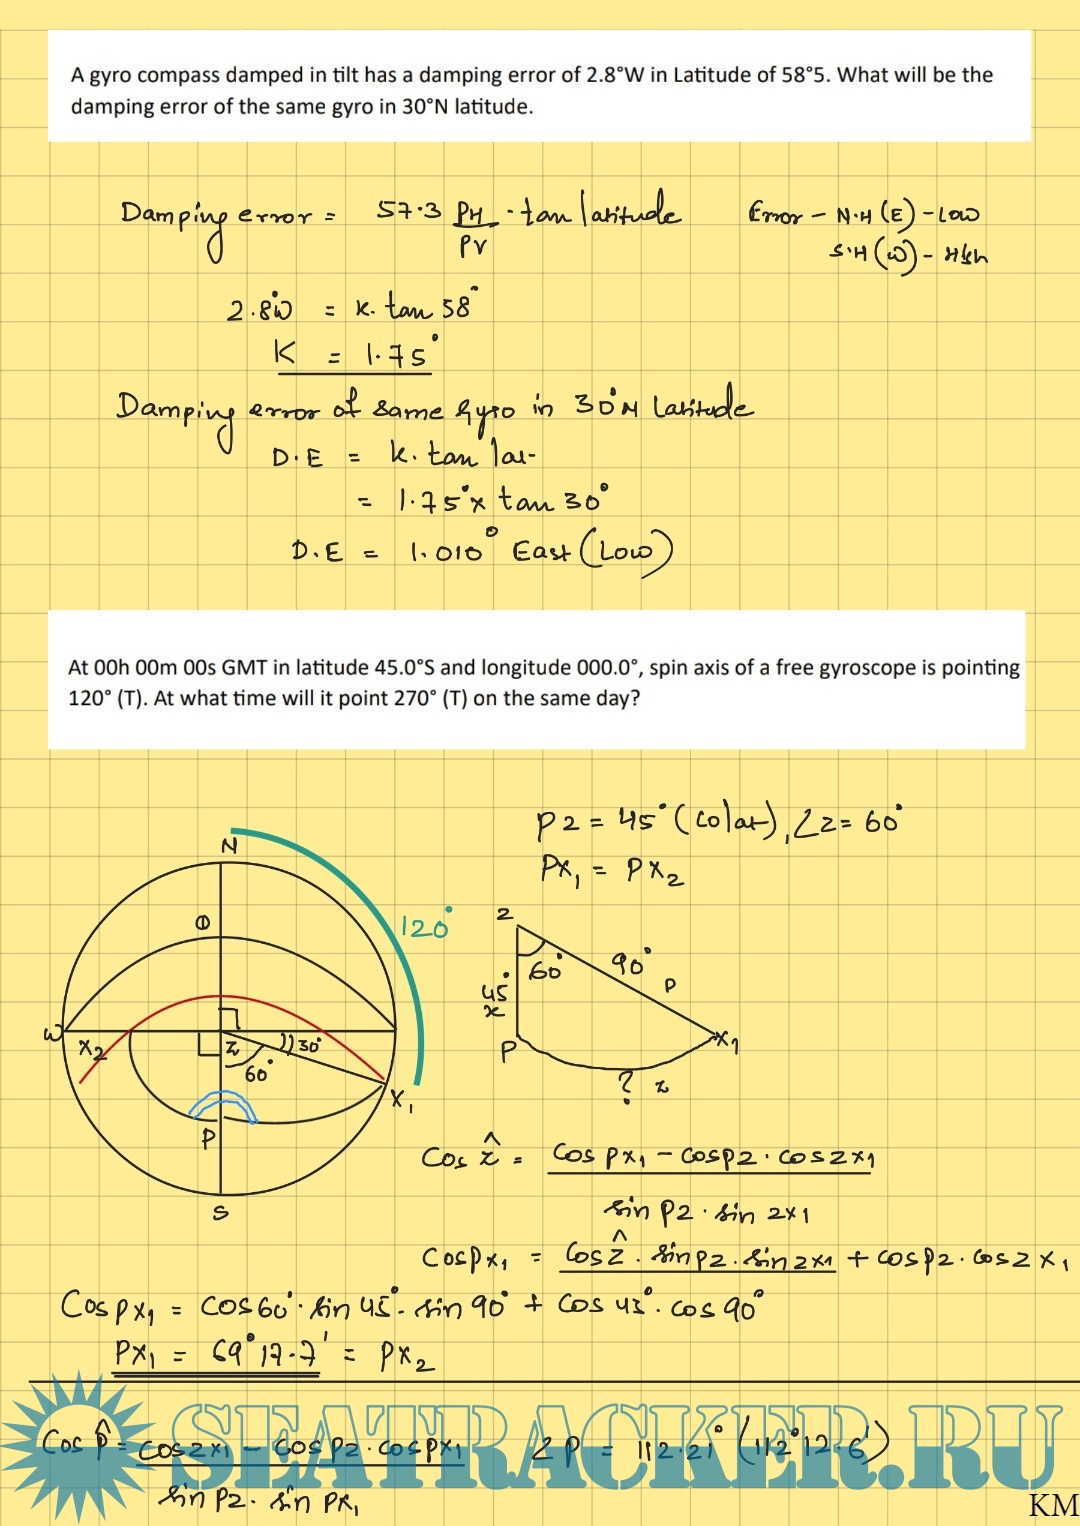 A gyro compass damped in tilt has a damping error of 2.8°W in Latitude of 58°5. What will be the
damping error of the same gyro in 30°N latitude.
Damping error = 57.3 PH/PV . tan latitude Error - N.H (E) - Low
S.H (W) - High
2.8°W = K. tan 58°
K = 1.75°
Damping error of same Gyro in 30°N Latitude
D.E = k. tan lat
= 1.75° x tan 30°
D.E = 1.010° East (Low)
At 00h 00m 00s GMT in latitude 45.0°S and longitude 000.0°, spin axis of a free gyroscope is pointing
120° (T). At what time will it point 270° (T) on the same day?
PZ = 45° (colat), ∠Z = 60°
PX₁ = PX₂
N
120°
Z
Φ
60° 90°
P
45°
x
W
X₂ Z 30°
60°
P X₁
? z
X₁
P
S
Cos ẑ = Cos PX₁ - Cos PZ . Cos ZX₁
sin PZ . sin ZX₁
Cos PX₁ = Cos Ẑ . sin PZ . sin ZX₁ + Cos PZ . Cos ZX₁
Cos PX₁ = Cos 60° . sin 45° . sin 90° + Cos 45° . cos 90°
PX₁ = 69° 17.7' = PX₂
Cos P̂ = Cos ZX₁ - Cos PZ . Cos PX₁ ∠P = 112.21° (112° 12.6')
sin PZ . sin PX₁
SEATRACKER.RU
KM